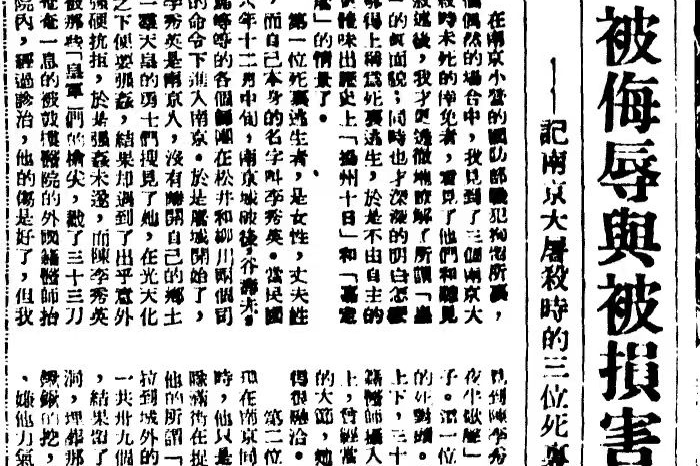 被侮辱與被損害
——記南京大屠殺時的三位死裏
在南京小營的國防部戰犯拘留所裏，
個偶然的場合中，我見到了三個南京大
殺時未死的倖免者，看見了他們和聽見
敘述後，我才更透徹地瞭解了所謂「皇
」的眞面貌；同時也才深深的明白怎麼
得上稱爲死裏逃生，於是不由自主的
味出歷史上「揚州十日」和「嘉定
」的情景了。
第一位死裏逃生者，是女性，丈夫姓
，而自己本身的名字叫李秀英。當民國
六年十二月中旬，南京城破後，谷壽夫
等的各個師團在松井和柳川兩個司
的命令下進入南京。於是屠城開始了，
李秀英是南京人，沒有離開自己的鄉土
一羣天皇的勇士們搜見了她，在光天化
之下便要強姦，結果却遇到了出乎意外
強硬抗拒，於是強姦未遂，而陳李秀英
被那些「皇軍」們的槍尖，戳了三十三刀
奄奄一息的被鼓樓醫院的外國籍醫師抬
院內，經過診治，他的傷是好了，但我
見到陳李秀
夜半
子。第一位
的死對頭。
上下，三十
籍醫師攝入
上，曾經當
的大節，她
得很融洽。
第二位
現在南京同
時，他只是
隊在捉
他的所謂「
拉到城外的
一共卅九個
，結果留了
洞，埋葬那
鍬鍬的挖，
、嫌他力氣